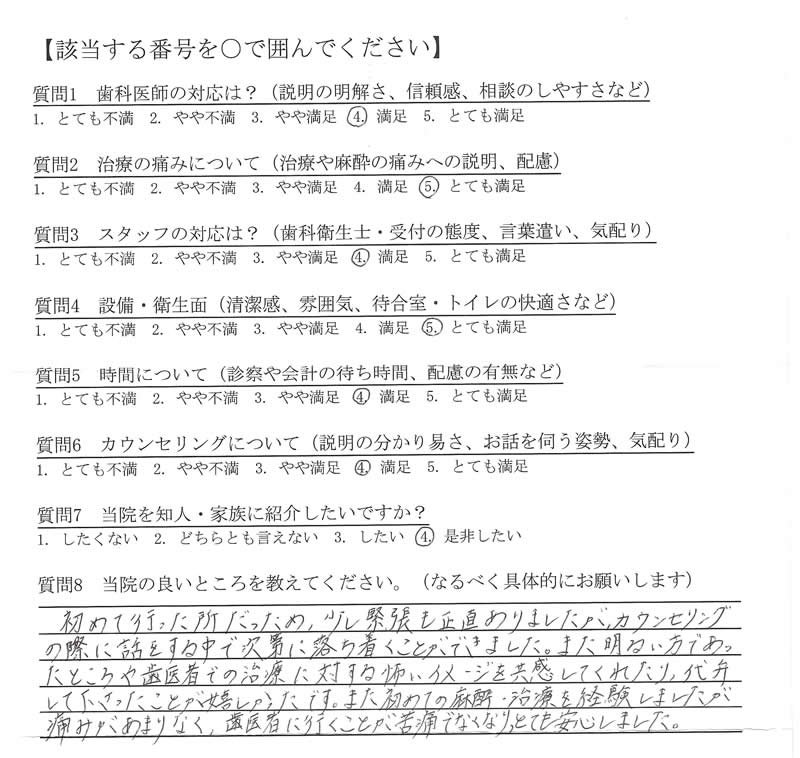 【該当する番号を○で囲んでください】
質問1 歯科医師の対応は？（説明の明解さ、信頼感、相談のしやすさなど）
1. とても不満 2. やや不満 3. やや満足 4. 満足 5. とても満足
質問2 治療の痛みについて（治療や麻酔の痛みへの説明、配慮）
1. とても不満 2. やや不満 3. やや満足 4. 満足 5. とても満足
質問3 スタッフの対応は？（歯科衛生士・受付の態度、言葉遣い、気配り）
1. とても不満 2. やや不満 3. やや満足 4. 満足 5. とても満足
質問4 設備・衛生面（清潔感、雰囲気、待合室・トイレの快適さなど）
1. とても不満 2. やや不満 3. やや満足 4. 満足 5. とても満足
質問5 時間について（診察や会計の待ち時間、配慮の有無など）
1. とても不満 2. やや不満 3. やや満足 4. 満足 5. とても満足
質問6 カウンセリングについて（説明の分かり易さ、お話を伺う姿勢、気配り）
1. とても不満 2. やや不満 3. やや満足 4. 満足 5. とても満足
質問7 当院を知人・家族に紹介したいですか？
1. したくない 2. どちらとも言えない 3. したい 4. 是非したい
質問8 当院の良いところを教えてください。（なるべく具体的にお願いします）
初めて行った所だったため、少し緊張も正直ありましたが、カウンセリング
の際に話をする中で次第に落ち着くことができました。また明るい方であっ
たところや歯医者での治療に対する怖いイメージを共感してくれたり、代弁
して下さったことが嬉しかったです。また初めての麻酔・治療を経験しましたが
痛みがあまりなく、歯医者に行くことが苦痛でなくなり、とても安心しました。